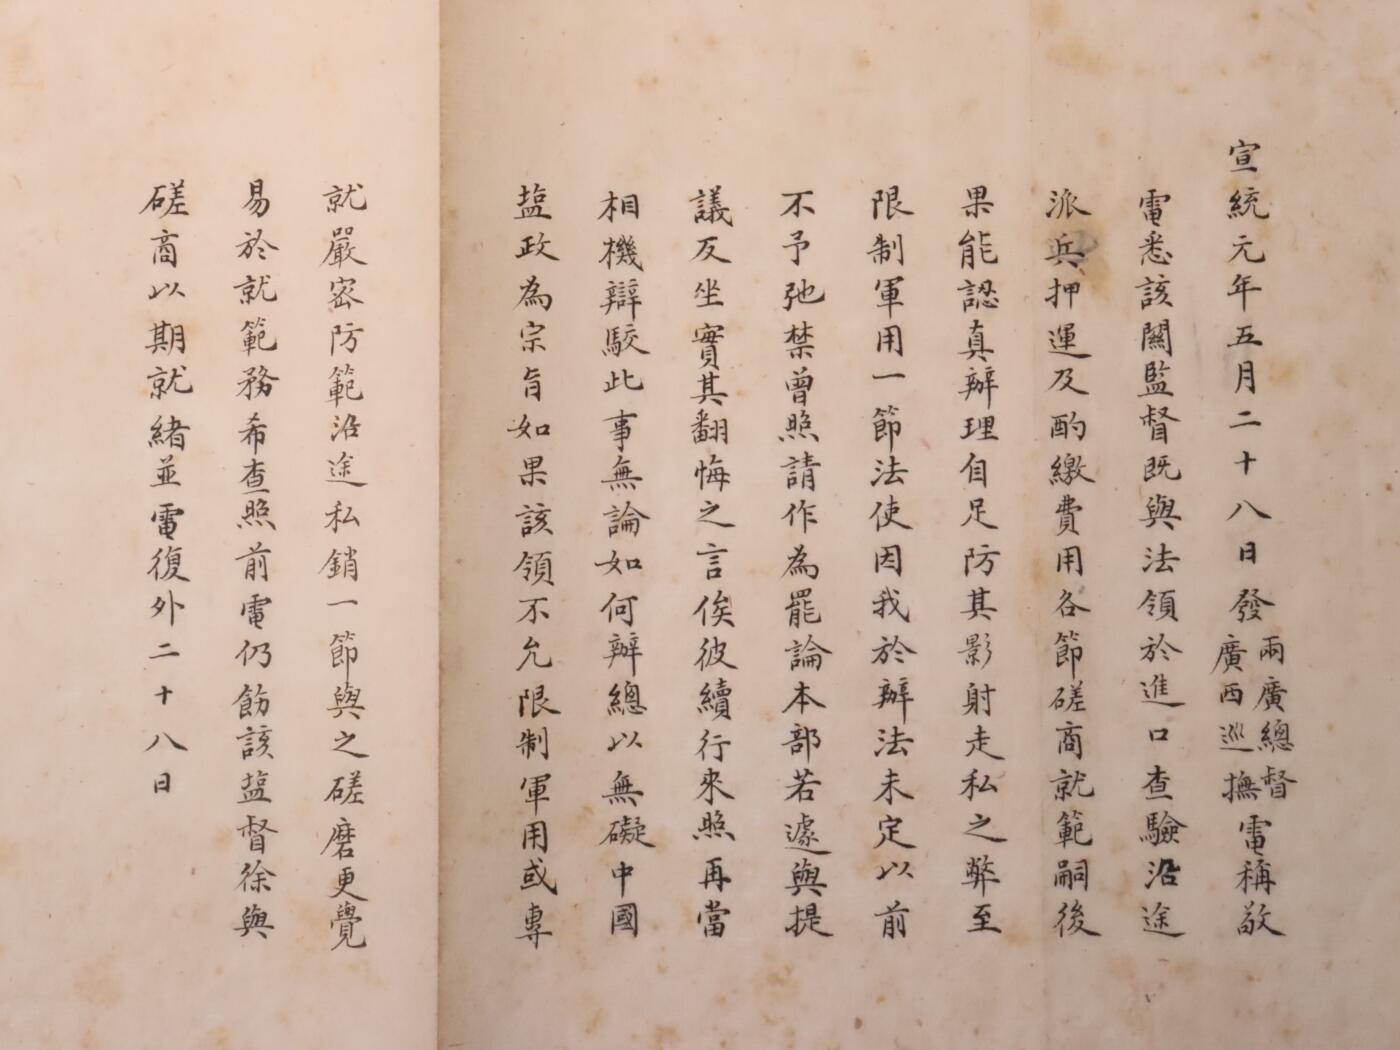 宣統元年五月二十八日發兩廣總督廣西巡撫電稱敬
電悉該關監督既與法領於進口查驗沿途
派兵押運及酌繳費用各節磋商就範嗣後
果能認真辦理自足防其影射走私之弊至
限制軍用一節法使因我於辦法未定以前
不予弛禁曾照請作為罷論本部若遽與提
議反坐實其翻悔之言俟彼續行來照再當
相機辯駁此事無論如何辦總以無礙中國
鹽政為宗旨如果該領不允限制軍用或專
就嚴密防範沿途私銷一節與之磋磨更覺
易於就範務希查照前電仍飭該監督徐與
磋商以期就緒並電復外二十八日